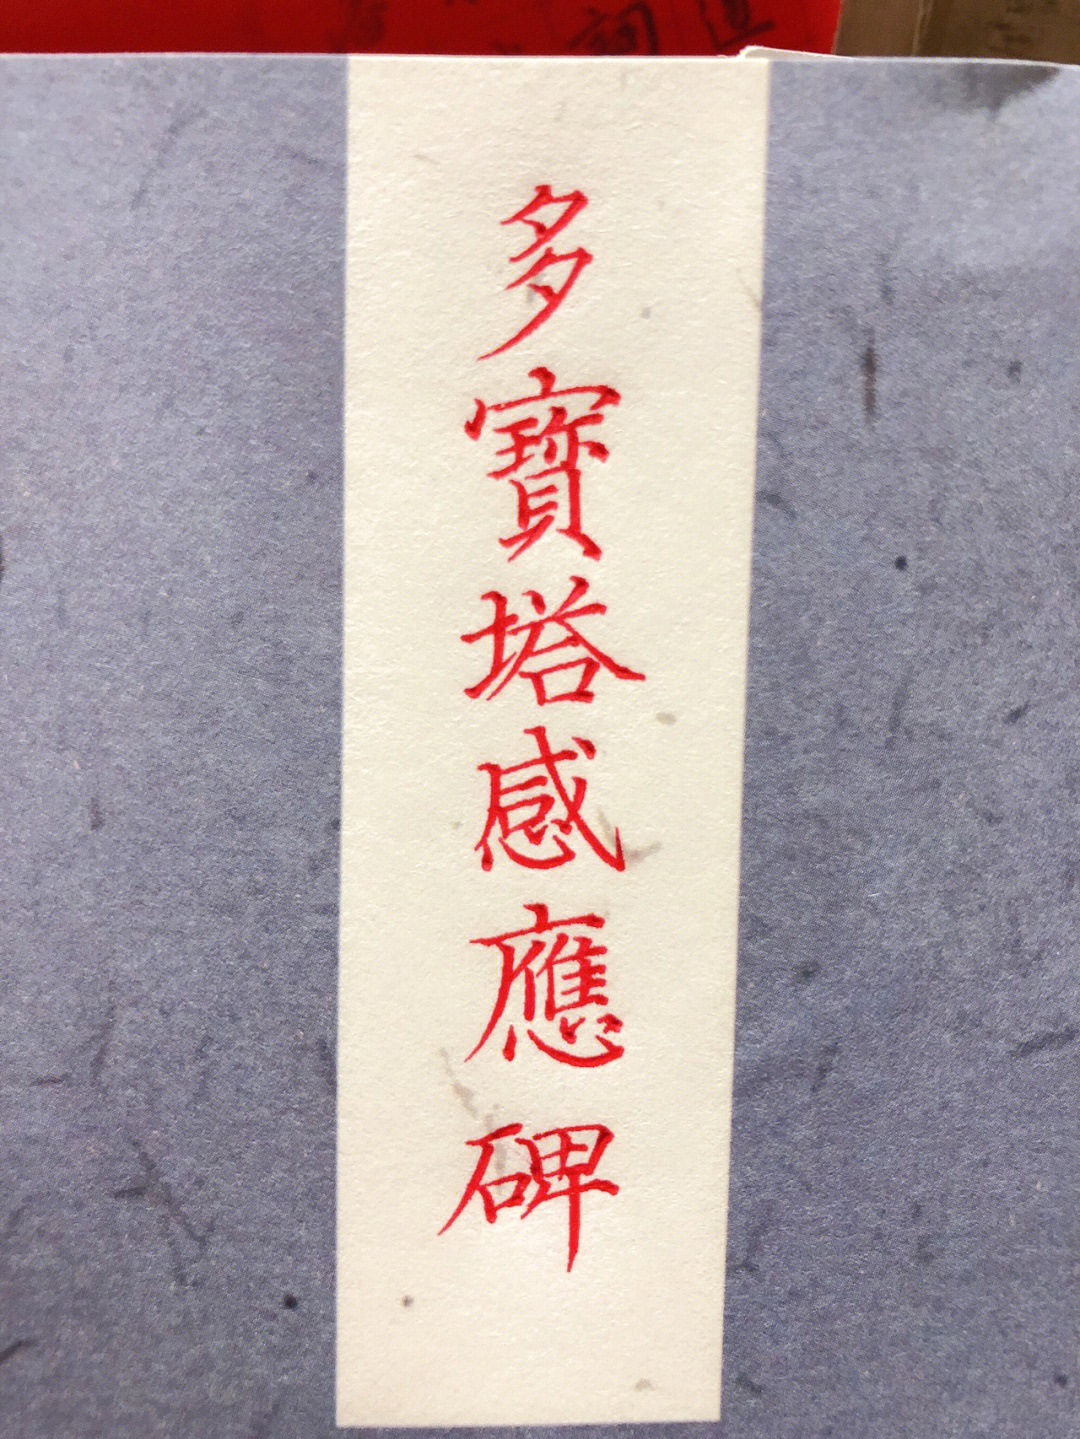 多寶塔感應碑
詞